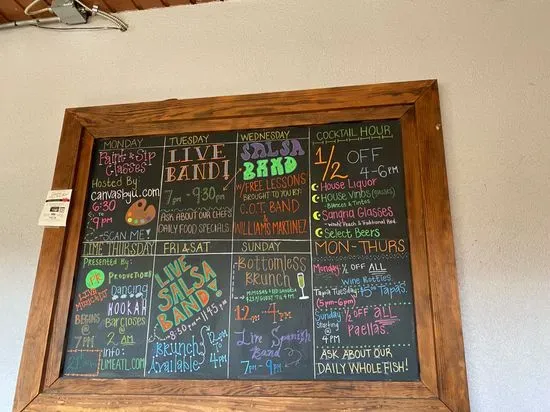 MONDAY
Paint & Sip
Classes
Hosted By:
canvasbyu.com
6:30
to
9pm
-SCAN ME!
TUESDAY
LIVE
BAND!
7pm - 9:30pm
ASK ABOUT OUR CHEFS
DAILY FOOD SPECIALS
WEDNESDAY
SALSA
BAND
W/FREE LESSONS
BROUGHT TO YOU BY:
C.O.T. BAND
&
WILLIAMS MARTINEZ
COCKTAIL HOUR
1/2 OFF
4-6PM
House Liquor
House Vinos (GLASSES)
- Blancos & Tintos
Sangria Glasses
- White Peach & Traditional Red
Select Beers
MON-THURS
Monday 1/2 OFF ALL
Wine Bottles
Tapa Tuesday $5 Tapas
(5pm-6pm)
Sunday 1/2 OFF all
Starting @ Paellas
4PM
ASK ABOUT OUR
DAILY WHOLE FISH!
LIME THURSDAY
Presented By:
PRODUCTIONS
LIVE
Dancing
HOOKAH
BEGINS
@
7PM
Bar Closes
@
2 AM
info:
LIMEATL.COM
FRI & SAT
LIVE
SALSA
BAND!
8:30pm - 11:45pm
Brunch
Available
4pm
SUNDAY
Bottomless
Brunch
12pm-4pm
Live Spanish
Band
7pm - 9pm